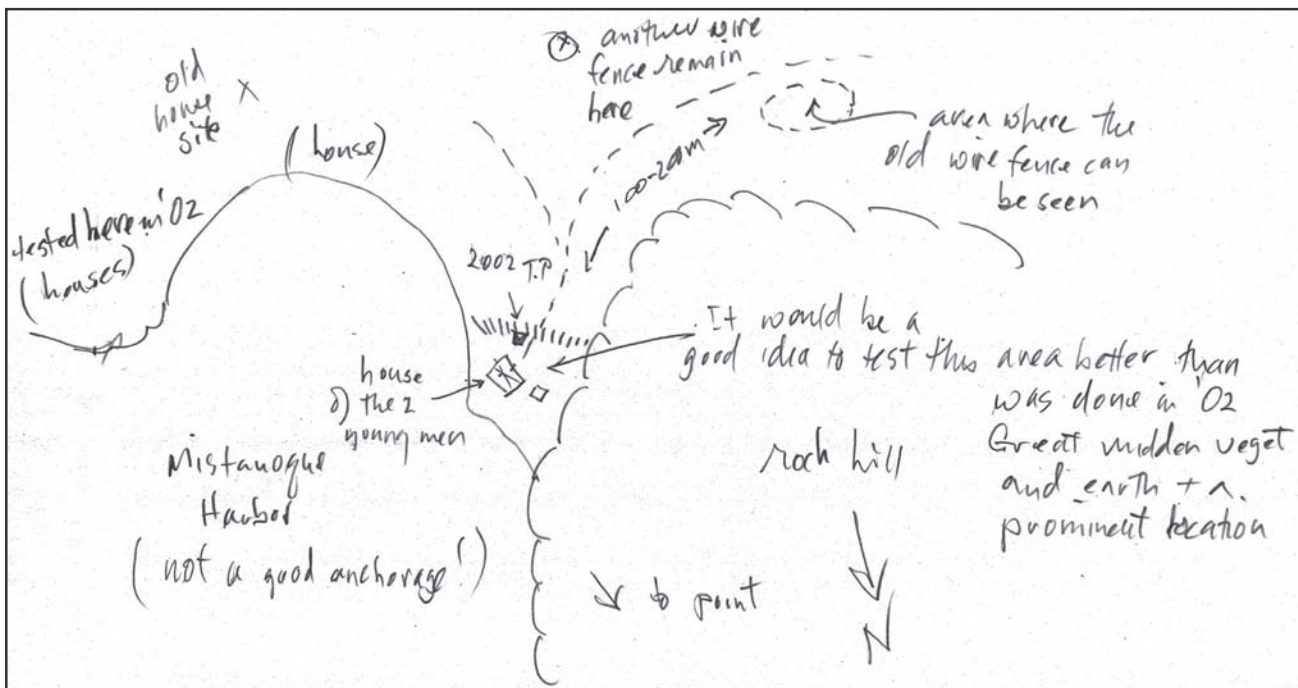 old
house
site
X
(house)
tested here in '02
(houses)
another wire
fence remain
here
100-200m
area where the
old wire fence can
be seen
2002 T.P
house
of the 2
young men
It would be a
good idea to test this area better than
was done in '02
Great midden veget
and earth + a
prominent location
Mistanoque
Harbor
(not a good anchorage!)
rock hill
to point
N